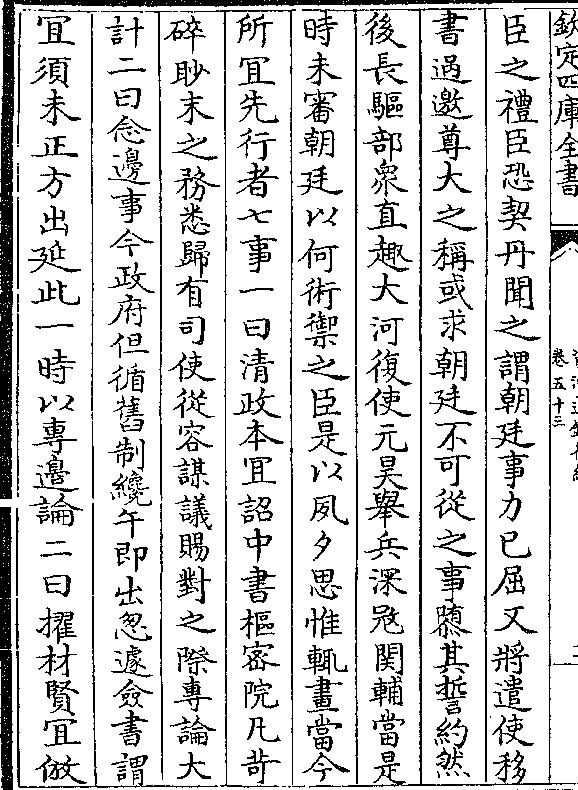 欽定四庫全書
卷五十三
臣之禮臣恐契丹聞之謂朝廷事力已屈又將遣使移
書過邀尊大之稱或求朝廷不可從之事隳其誓約然
後長驅部衆直趣大河復使元昊舉兵深冦関輔當是
時未審朝廷以何術禦之臣是以夙夕思惟輒畫當今
所冝先行者七事一曰清政本冝詔中書樞宻院凡苛
碎眇末之務悉歸有司使從容謀議賜對之際專論大
計二曰念邊事今政府但循舊制纔午即出怱遽僉書謂
冝須未正方出延此一時以專邊論二曰擢材賢冝倣